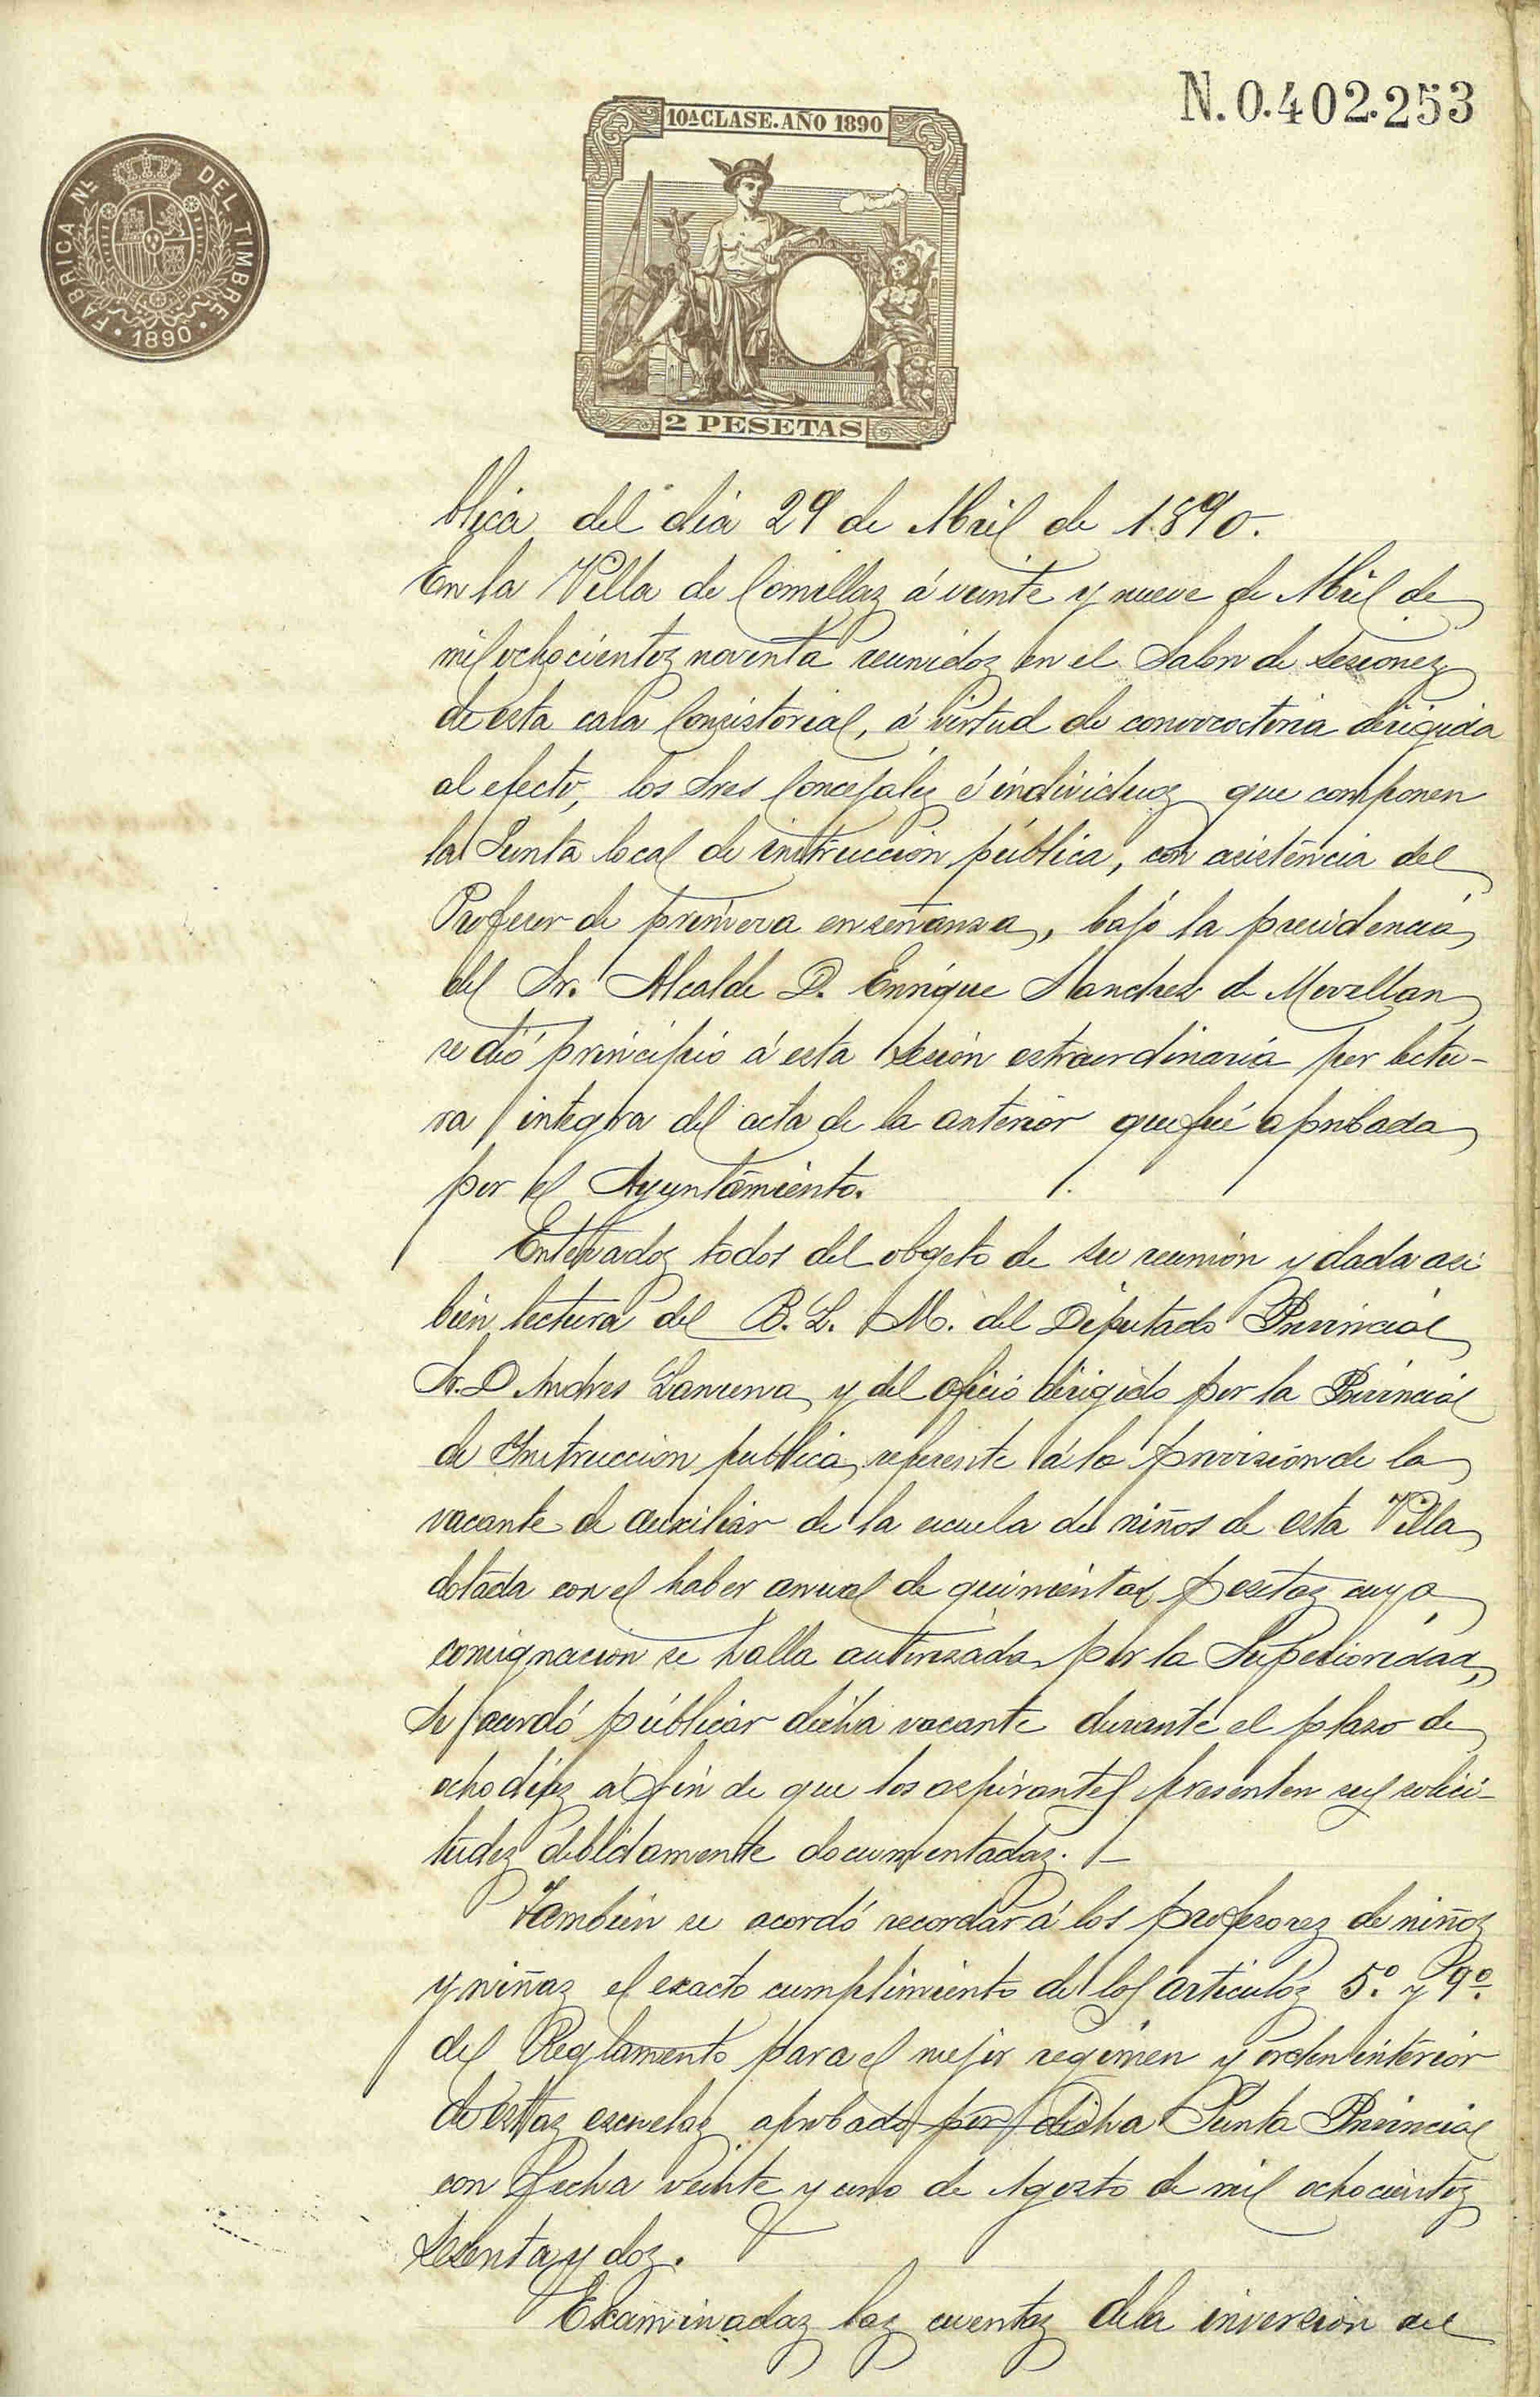 N. 0.402.253
10ª CLASE. AÑO 1890
FABRICA NL. DEL TIMBRE
· 1890 ·
2 PESETAS
blica del dia 29 de Abril de 1.890.
En la Villa de Comillas á veinte y nueve de Abril de
mil ochocientos noventa reunidos en el Salon de Sesiones
de esta casa Consistorial, á virtud de convocatoria dirigida
al efecto, los Sres Concejales é individuos que componen
la Junta local de instruccion pública, con asistencia del
Profesor de primera enseñanza, bajo la presidencia
del Sr. Alcalde D. Enrique Sanchez de Movellan
se dió principio á esta sesión estraordinaria por lectu-
ra integra del acta de la anterior que fué aprobada
por el Ayuntamiento.
Enterados todos del objeto de su reunión y dada asi
bien lectura del B. L. M. del Diputado Provincial
Sr. D Andres y del oficio dirigido por la Provincial
de Instruccion publica, referente á la provision de la
vacante de auxiliar de la escuela de niños de esta Villa
dotada con el haber anual de quinientas pesetas cuya
consignacion se halla autorizada por la Superioridad,
Se acordó públicar dicha vacante durante el plazo de
ocho dias á fin de que los aspirantes presenten sus solici-
tudes debidamente documentadas.
Tambien se acordó recordar á los profesores de niños
y niñas el exacto cumplimiento de los articulos 5.º y 9.º
del Reglamento para el mejor regimen y orden interior
de estas escuelas aprobado por dicha Junta Provincial
con fecha veinte y uno de Agosto de mil ochocientos
sesenta y dos.
Examinadas las cuentas de la inversion del